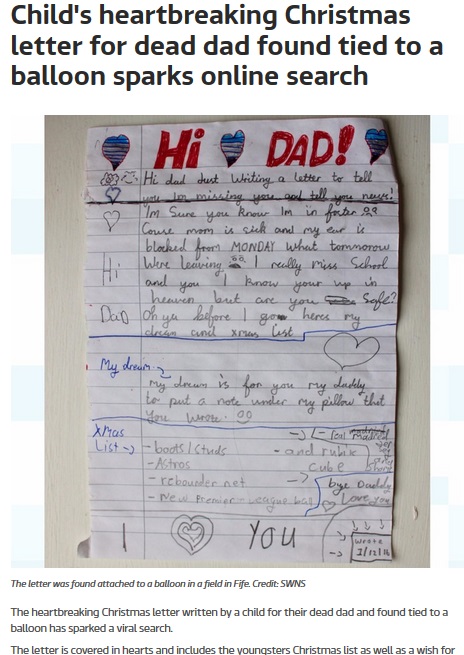 Child's heartbreaking Christmas
letter for dead dad found tied to a
balloon sparks online search
Hi DAD!
Hi dad Just Writing a letter to tell
you Im missing you and tell you news!
Im Sure you know Im in foster
Couse mom is sick and my ear is
blocked from MONDAY What tomnorow
Were leaving I really miss School
Hi
and you I know your up in
heaven but are you Safe?
Dad
Oh ya before I go heres my
dream and xmas list
My dream
my dream is for you my daddy
to put a note under my pillow that
you wrote.
Xmas
List
- boots/studs
- Astros
- rebounder net
- New Premier League ball
- Real Madrid
- and rubix
cube
bye Daddy
Love you
I YOU
Wrote
1/12/16
The letter was found attached to a balloon in a field in Fife. Credit: SWNS
The heartbreaking Christmas letter written by a child for their dead dad and found tied to a
balloon has sparked a viral search.
The letter is covered in hearts and includes the youngsters Christmas list as well as a wish for